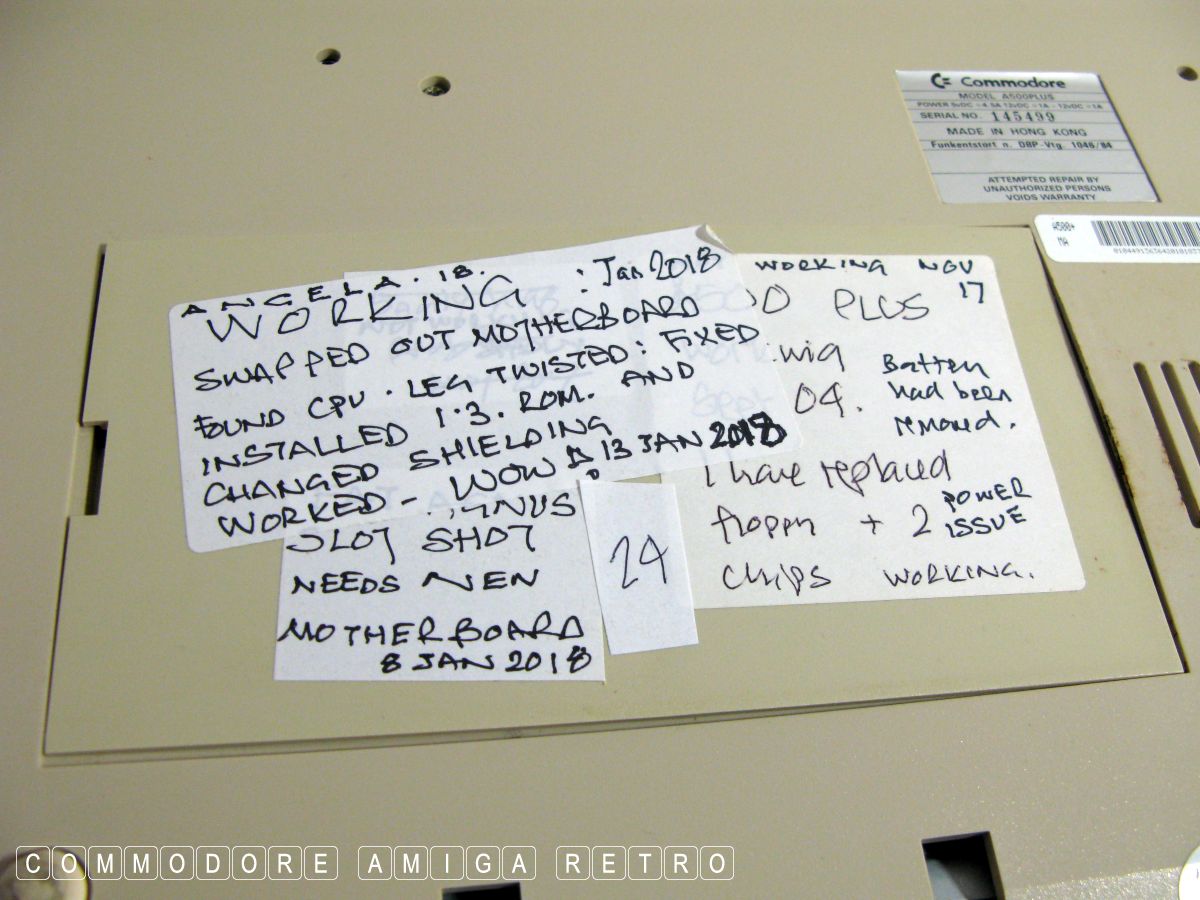 Commodore
MODEL A500PLUS
POWER 5vDC =4.5A 12vDC =1A -12vDC =.1A
SERIAL NO. 145499
MADE IN HONG KONG
Funkentstört n. DBP-Vfg. 1046/84
ATTEMPTED REPAIR BY
UNAUTHORIZED PERSONS
VOIDS WARRANTY
A500+
MA
ANGELA. 18.
WORKING : Jan 2018
SWAPPED OUT MOTHERBOARD
FOUND CPU. LEG TWISTED: FIXED
INSTALLED 1.3. ROM. AND
CHANGED SHIELDING
WORKED - WOW 13 JAN 2018
WORKING NOV
17
PLUS
04.
Battery
had been
removed.
I have replaced
floppy + 2
POWER
ISSUE
chips WORKING.
SLOT SHOT
NEEDS NEW
MOTHERBOARD
8 JAN 2018
24
COMMODORE AMIGA RETRO